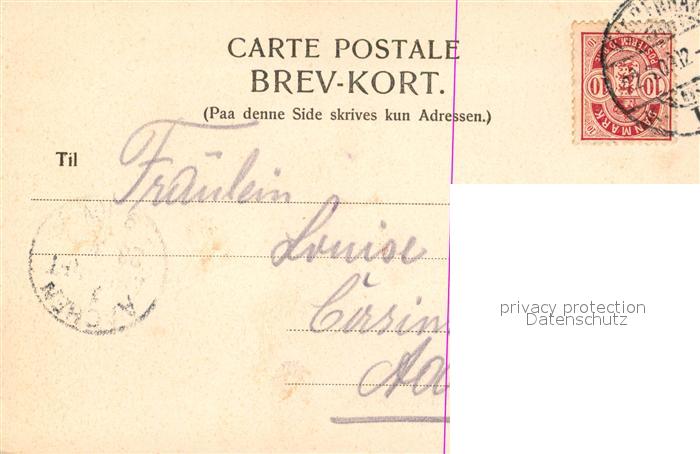 CARTE POSTALE
BREV-KORT.
(Paa denne Side skrives kun Adressen.)
Til
Fräulein
Louise
Aa
10 10
DANMARK
AACHEN
privacy protection
Datenschutz